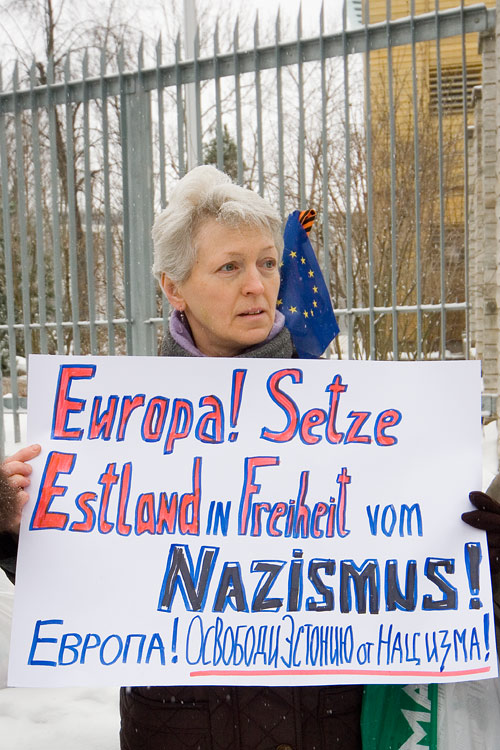 Europa! Setze
Estland in Freiheit vom
Nazismus!
Европа! Освободи Эстонию от Нацизма!
MA